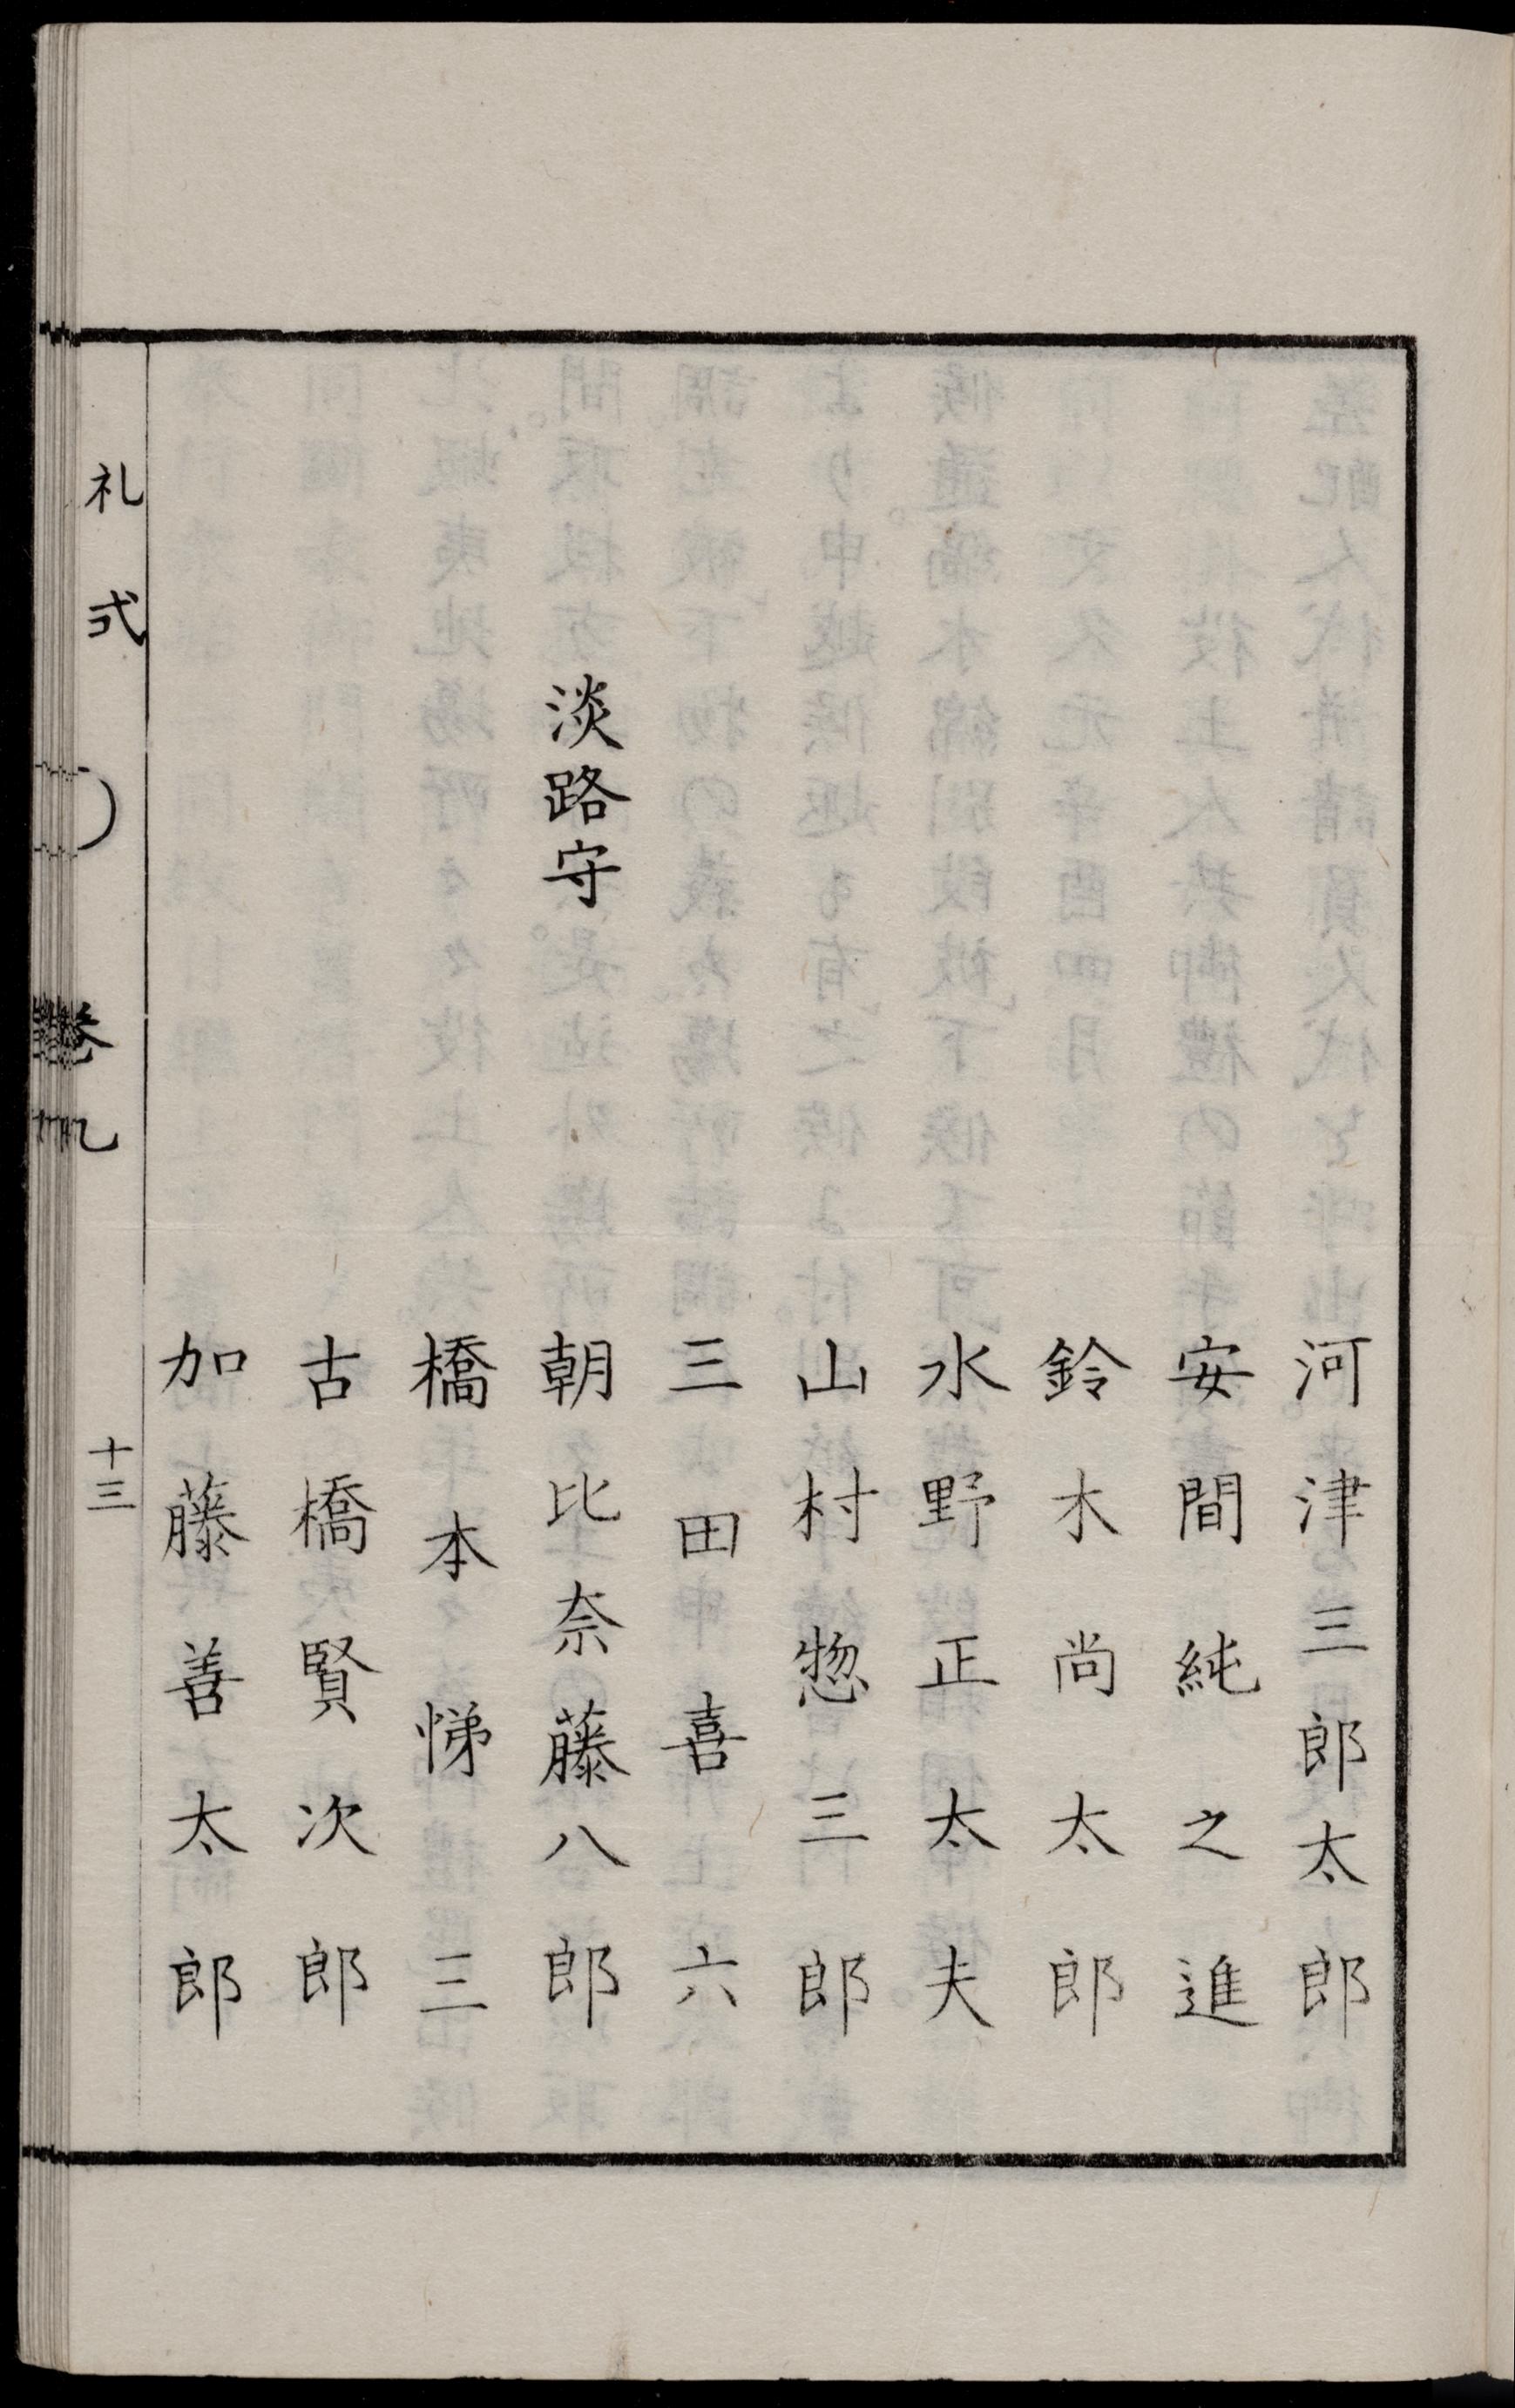 河津三郎太郎
安間純之進
鈴木尚太郎
水野正太夫
山村惣三郎
三田喜六
淡路守　朝比奈藤八郎
橋本悌三
古橋賢次郎
加藤善太郎
礼式　巻九　十三